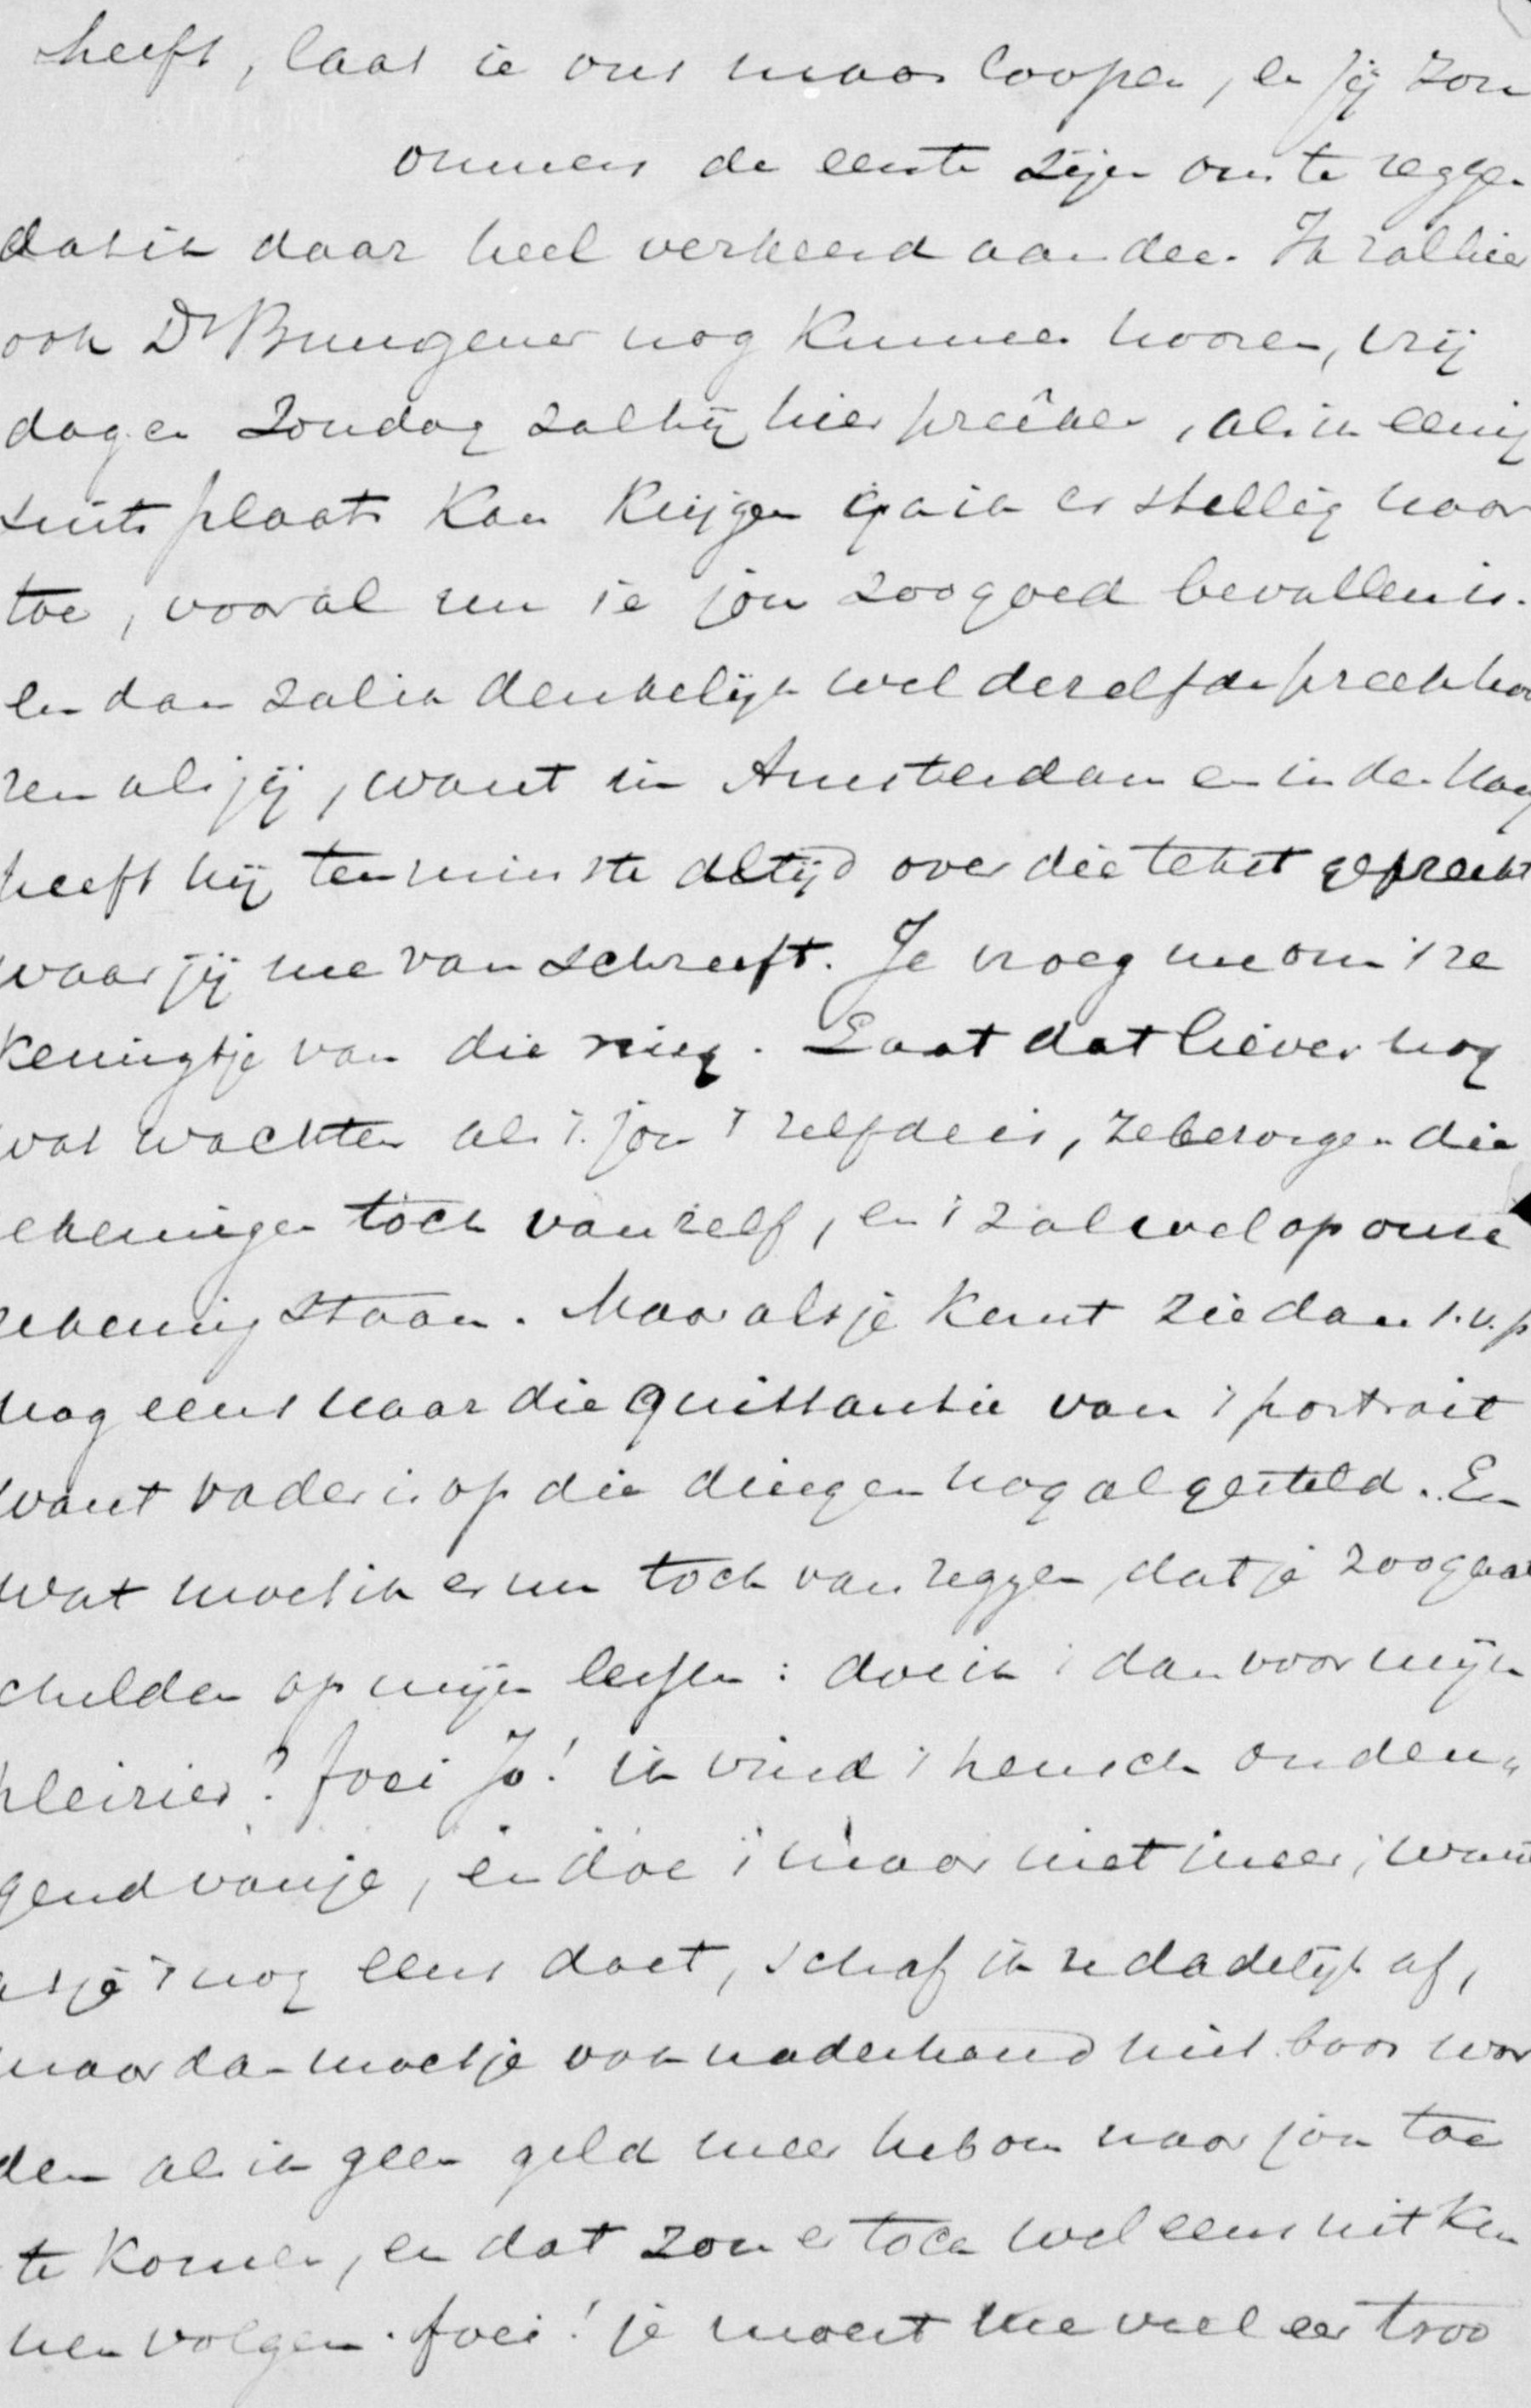 heeft, laat ie ons maar loopen, en jij zou
ommers de eerste zijn om te zeggen
dat ik daar heel verkeerd aan dee. Ik zal hier
ook Ds Bungener nog kunnen hooren, vrij
dag en Zondag zal hij hier preêken, als ik eenig
sints plaats kan krijgen ga ik er stellig naar
toe, vooral nu ie jou zoo goed bevallen is.
en dan zal ik denkelijk wel dezelfde preek hoo
ren als jij, want in Amsterdam en in den Haag
heeft hij tenminste altijd over die tekst gepreekt
waar jij me van schreeft. Je vroeg me om 't re
keningtje van die ring. Laat dat liever nog
wat wachten als 't jou 't zelfde is, ze bezorgen die
rekeningen toch van zelf, en 't zal wel op onze
rekening staan. Maar als je kunt zie dan s.v.p
nog eens naar die quittantie van 't portrait
want vader is op die dingen nog al gesteld. En
wat moet ik er nu toch van zeggen, dat je zoo gaat
schelden op mijn lessen: doe ik 't dan voor mijn
pleizier? foei Jo! ik vind 't heusch ondeu„
gend van je, en doe 't maar niet meer, want
als je 't nog eens doet, schaf ik ze dadelijk af,
maar dan moet je ook naderhand niet boos wor
den als ik geen geld meer heb om naar jou toe
te komen, en dat zou er toch wel eens uit kun
nen volgen. foei! je moest me veel eer troo